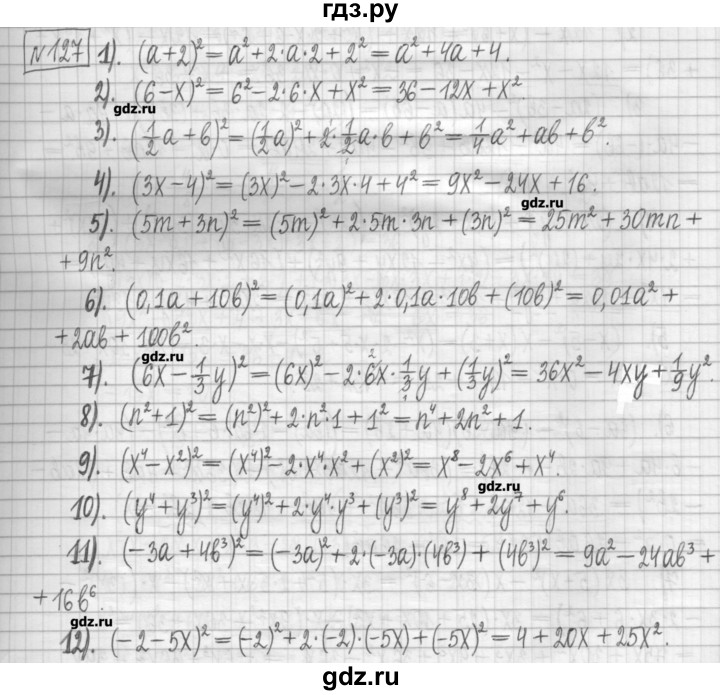 гдз.ру
№127 1). (a+2)² = a²+2·a·2+2² = a²+4a+4.
2). (6−x)² = 6²−2·6·x+x² = 36−12x+x².
gdz.ru
3). (1/2a+b)² = (1/2a)²+2·1/2a·b+b² = 1/4a²+ab+b².
4). (3x−4)² = (3x)²−2·3x·4+4² = 9x²−24x+16.
gdz.ru
5). (5m+3n)² = (5m)²+2·5m·3n+(3n)² = 25m²+30mn+
+9n².
6). (0,1a+10b)² = (0,1a)²+2·0,1a·10b+(10b)² = 0,01a²+
+2ab+100b².
gdz.ru
7). (6x−1/3y)² = (6x)²−2·6x·1/3y+(1/3y)² = 36x²−4xy+1/9y².
8). (n²+1)² = (n²)²+2·n²·1+1² = n⁴+2n²+1.
9). (x⁴−x²)² = (x⁴)²−2·x⁴·x²+(x²)² = x⁸−2x⁶+x⁴.
gdz.ru
10). (y⁴+y³)² = (y⁴)²+2·y⁴·y³+(y³)² = y⁸+2y⁷+y⁶.
11). (−3a+4b³)² = (−3a)²+2·(−3a)·(4b³)+(4b³)² = 9a²−24ab³+
+16b⁶.
gdz.ru
12). (−2−5x)² = (−2)²+2·(−2)·(−5x)+(−5x)² = 4+20x+25x².
gdz.ru